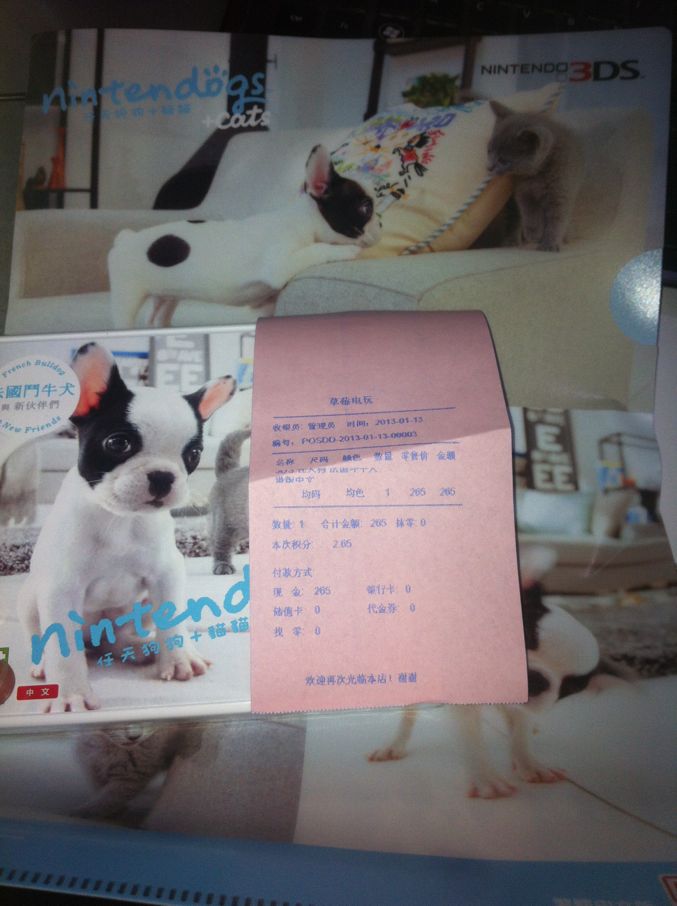 nintendogs
+cats
任天狗狗+貓貓
NINTENDO3DS
French Bulldog
法國鬥牛犬
與 新伙伴們
& New Friends
nintend
任天狗狗+貓貓
中文
草莓电玩
收银员: 管理员 时间: 2013-01-13
编号: POSDD-2013-01-13-00003
名称 尺码 颜色 数量 零售价 金额
港版中文
均码 均色 1 265 265
数量: 1 合计金额: 265 抹零: 0
本次积分: 2.65
付款方式:
现 金: 265 银行卡: 0
储值卡: 0 代金券: 0
找 零: 0
欢迎再次光临本店! 谢谢